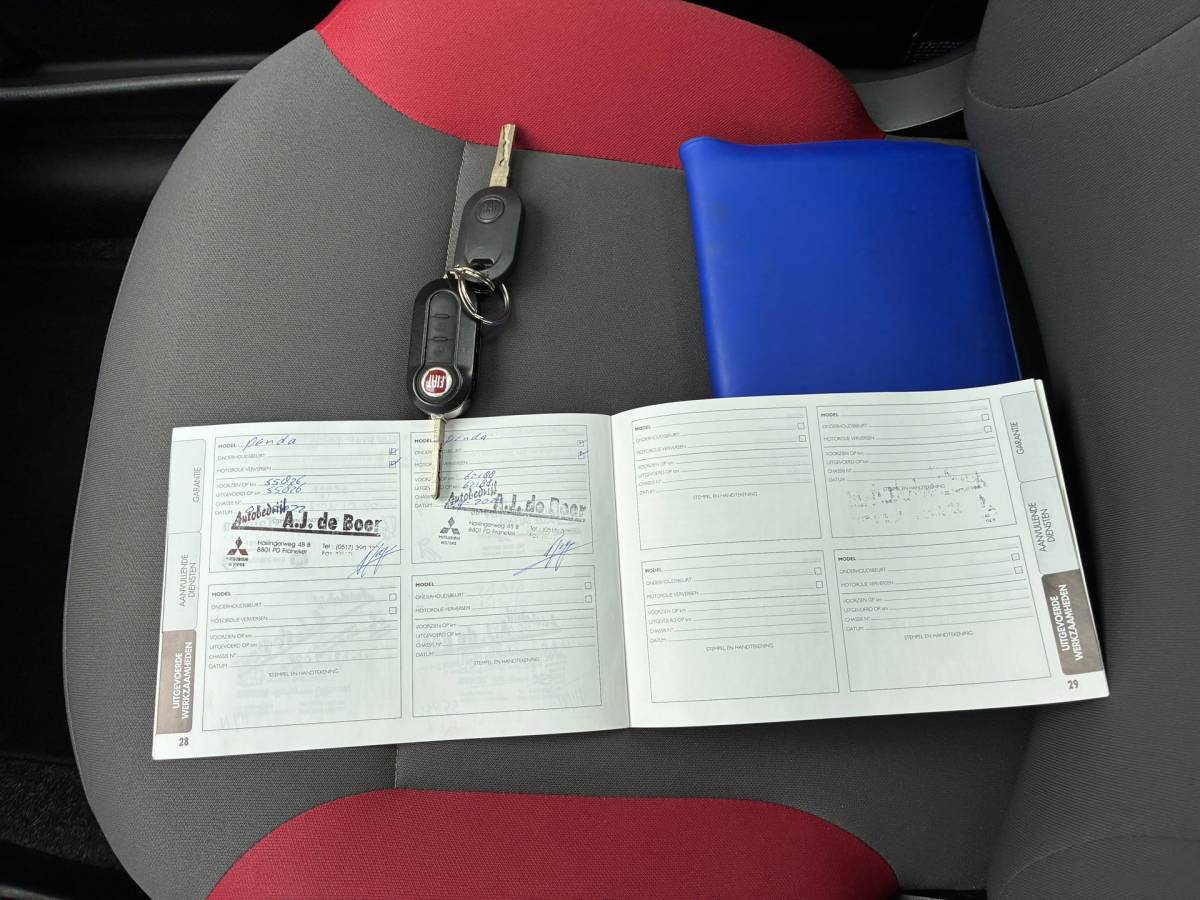 FIAT
FIAT
GARANTIE
AANVULLENDE
DIENSTEN
UITGEVOERDE
WERKZAAMHEDEN
28
MODEL Penda
ONDERHOUDSBEURT
MOTOROLIE VERVERSEN
VOORZIEN OP km 55026
UITGEVOERD OP km 55026
CHASSIS N°
DATUM
Autobedrijf
A.J. de Boer
MITSUBISHI
MOTORS
Harlingerweg 48 B
8801 PD Franeker
Tel : (0517) 390
MODEL Penda
ONDERHOUDSBEURT
MOTOROLIE VERVERSEN
VOORZIEN OP km 62188
UITGEVOERD OP km 62188
CHASSIS
DATUM
Autobedrijf
A.J. de Boer
MITSUBISHI
MOTORS
Harlingerweg 48 B
8801 PD Franeker
Tel : (0517)
MODEL
ONDERHOUDSBEURT
MOTOROLIE VERVERSEN
VOORZIEN OP km
UITGEVOERD OP km
CHASSIS N°
DATUM
STEMPEL EN HANDTEKENING
MODEL
ONDERHOUDSBEURT
MOTOROLIE VERVERSEN
VOORZIEN OP km
UITGEVOERD OP km
CHASSIS N°
DATUM
STEMPEL EN HANDTEKENING
MODEL
ONDERHOUDSBEURT
MOTOROLIE VERVERSEN
VOORZIEN OP km
UITGEVOERD OP km
CHASSIS N°
DATUM
STEMPEL EN HANDTEKENING
MODEL
ONDERHOUDSBEURT
MOTOROLIE VERVERSEN
VOORZIEN OP km
UITGEVOERD OP km
CHASSIS N°
DATUM
EN HANDTEKENING
MODEL
ONDERHOUDSBEURT
MOTOROLIE VERVERSEN
VOORZIEN OP km
UITGEVOERD OP km
CHASSIS N°
DATUM
STEMPEL EN HANDTEKENING
MODEL
ONDERHOUDSBEURT
MOTOROLIE VERVERSEN
VOORZIEN OP km
UITGEVOERD OP km
CHASSIS N°
DATUM
STEMPEL EN HANDTEKENING
GARANTIE
AANVULLENDE
DIENSTEN
UITGEVOERDE
WERKZAAMHEDEN
29